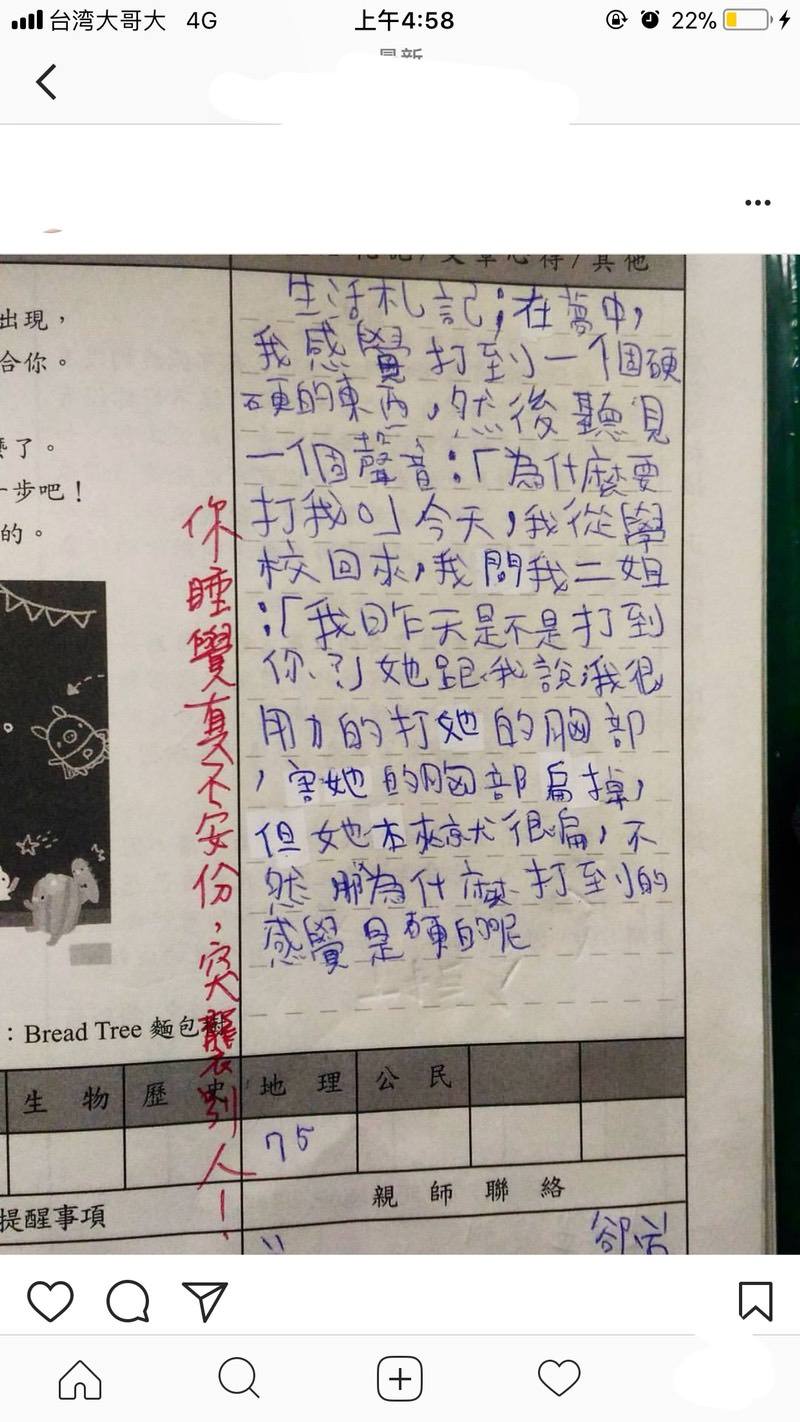 台湾大哥大 4G 上午4:58 22%
最新
札記/文章心得/其他
出現，
合你。
麼了。
一步吧！
的。
生活札記；在夢中，
我感覺打到一個硬
硬的東西，然後聽見
一個聲音：「為什麼要
打我。」今天，我從學
校回來，我問我二姐
：「我昨天是不是打到
你？」她跟我說我很
用力的打她的胸部
，害她的胸部扁掉，
但她本來就很扁，不
然那為什麼打到的
感覺是硬的呢
你睡覺真不安份，突襲別人！
：Bread Tree 麵包樹
生物 歷史 地理 公民
75
提醒事項 親師聯絡